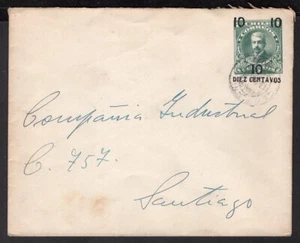 10 10
CHILE
CORREOS
10
DIEZ CENTAVOS
Compañia Industrial
C. 757.
Santiago